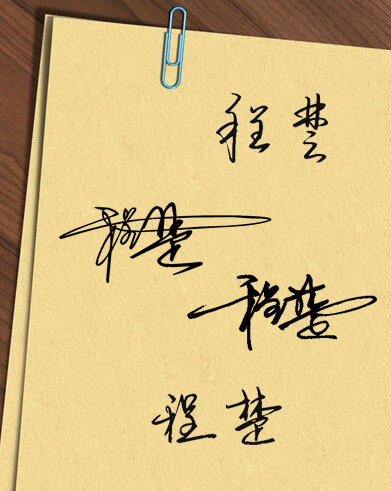 程楚
程楚
程楚
程楚